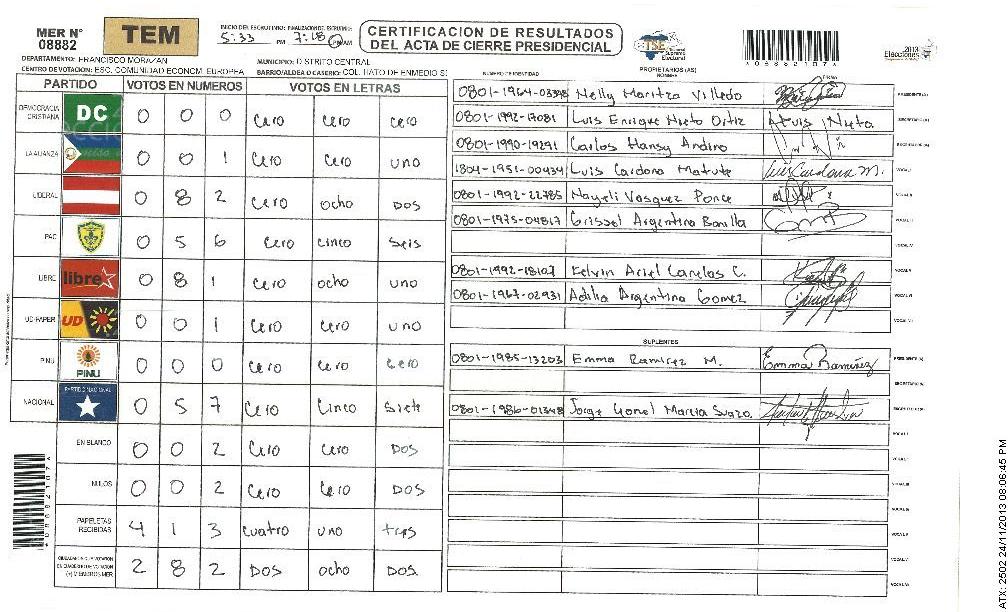 MER N° 08882
TEM
INICIO DEL ESCRUTINIO: 5:33 PM
FINALIZACION DEL ESCRUTINIO: 7:18 PM AM
CERTIFICACION DE RESULTADOS
DEL ACTA DE CIERRE PRESIDENCIAL
TSE Tribunal Supremo Electoral
2013 Elecciones
DEPARTAMENTO: FRANCISCO MORAZAN MUNICIPIO: DISTRITO CENTRAL
CENTRO DE VOTACION: ESC. COMUNIDAD ECONOM. EUROPEA BARRIO/ALDEA O CASERIO: COL. HATO DE ENMEDIO
PARTIDO VOTOS EN NUMEROS VOTOS EN LETRAS
DEMOCRACIA CRISTIANA DC 0 0 0 Cero Cero Cero
LA ALIANZA 0 0 1 Cero Cero uno
LIBERAL 0 8 2 Cero ocho Dos
PAC 0 5 6 Cero cinco seis
LIBRE libre 0 8 1 Cero ocho uno
UD-FAPER UD 0 0 1 Cero Cero uno
PINU PINU 0 0 0 Cero Cero Cero
NACIONAL PARTIDO NACIONAL 0 5 7 Cero Cinco Siete
EN BLANCO 0 0 2 Cero Cero Dos
NULOS 0 0 2 Cero Cero Dos
PAPELETAS RECIBIDAS 4 1 3 Cuatro uno tres
2 8 2 Dos ocho Dos
NUMERO DE IDENTIDAD PROPIETARIOS (AS) NOMBRE FIRMA
0801-1964-03398 Nelly Maritza Villedo PRESIDENTE (A)
0801-1992-17081 Luis Enrique Nieto Ortiz Luis Nieto SECRETARIO (A)
0801-1990-19291 Carlos Hansy Andino ESCRUTADOR (A)
1804-1951-00434 Luis Cardona Matute Luis Cardona M. VOCAL I
0801-1992-22785 Nayeli Vasquez Ponce VOCAL II
0801-1975-04817 Grissel Argentina Bonilla VOCAL III
VOCAL IV
0801-1992-18107 Kelvin Ariel Canelas C. VOCAL V
0801-1967-02931 Adilia Argentina Gomez VOCAL VI
VOCAL VII
SUPLENTES
0801-1985-13203 Emma Ramirez M. Emma Ramirez PRESIDENTE (A)
SECRETARIO (A)
0801-1986-01348 Jorge Lionel Marcia Suazo. ESCRUTADOR (A)
VOCAL I
VOCAL II
VOCAL III
VOCAL IV
VOCAL V
VOCAL VI
VOCAL VII
ATX-2502 24/11/2013 08:06:45 PM